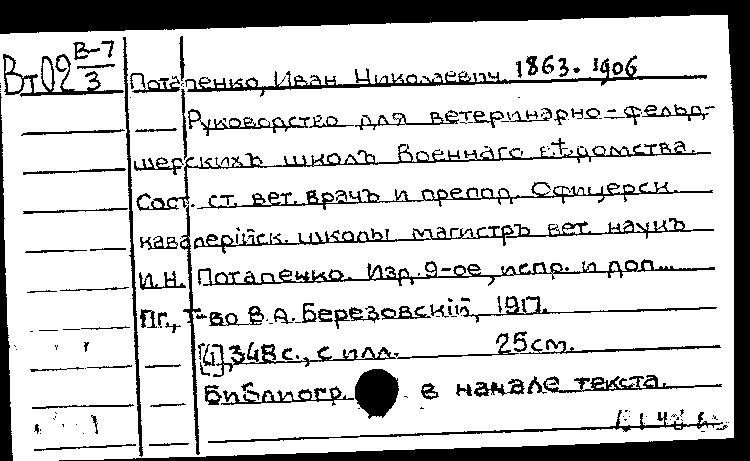 Вт02 В-7/3
Потапенко, Иван Николаевич. 1863. 1906
Руководство для ветеринарно-фельд-
шерскихъ школъ Военнаго вѣдомства.
Сост. ст. вет. врачъ и препод. Офицерск.
кавалерійск. школы магистръ вет. наукъ
И.Н. Потапенко. Изд. 9-ое, испр. и доп...
Пг., Т-во В.А. Березовскій, 1917.
[4], 348 с., с илл. 25см.
Библиогр. в начале текста.